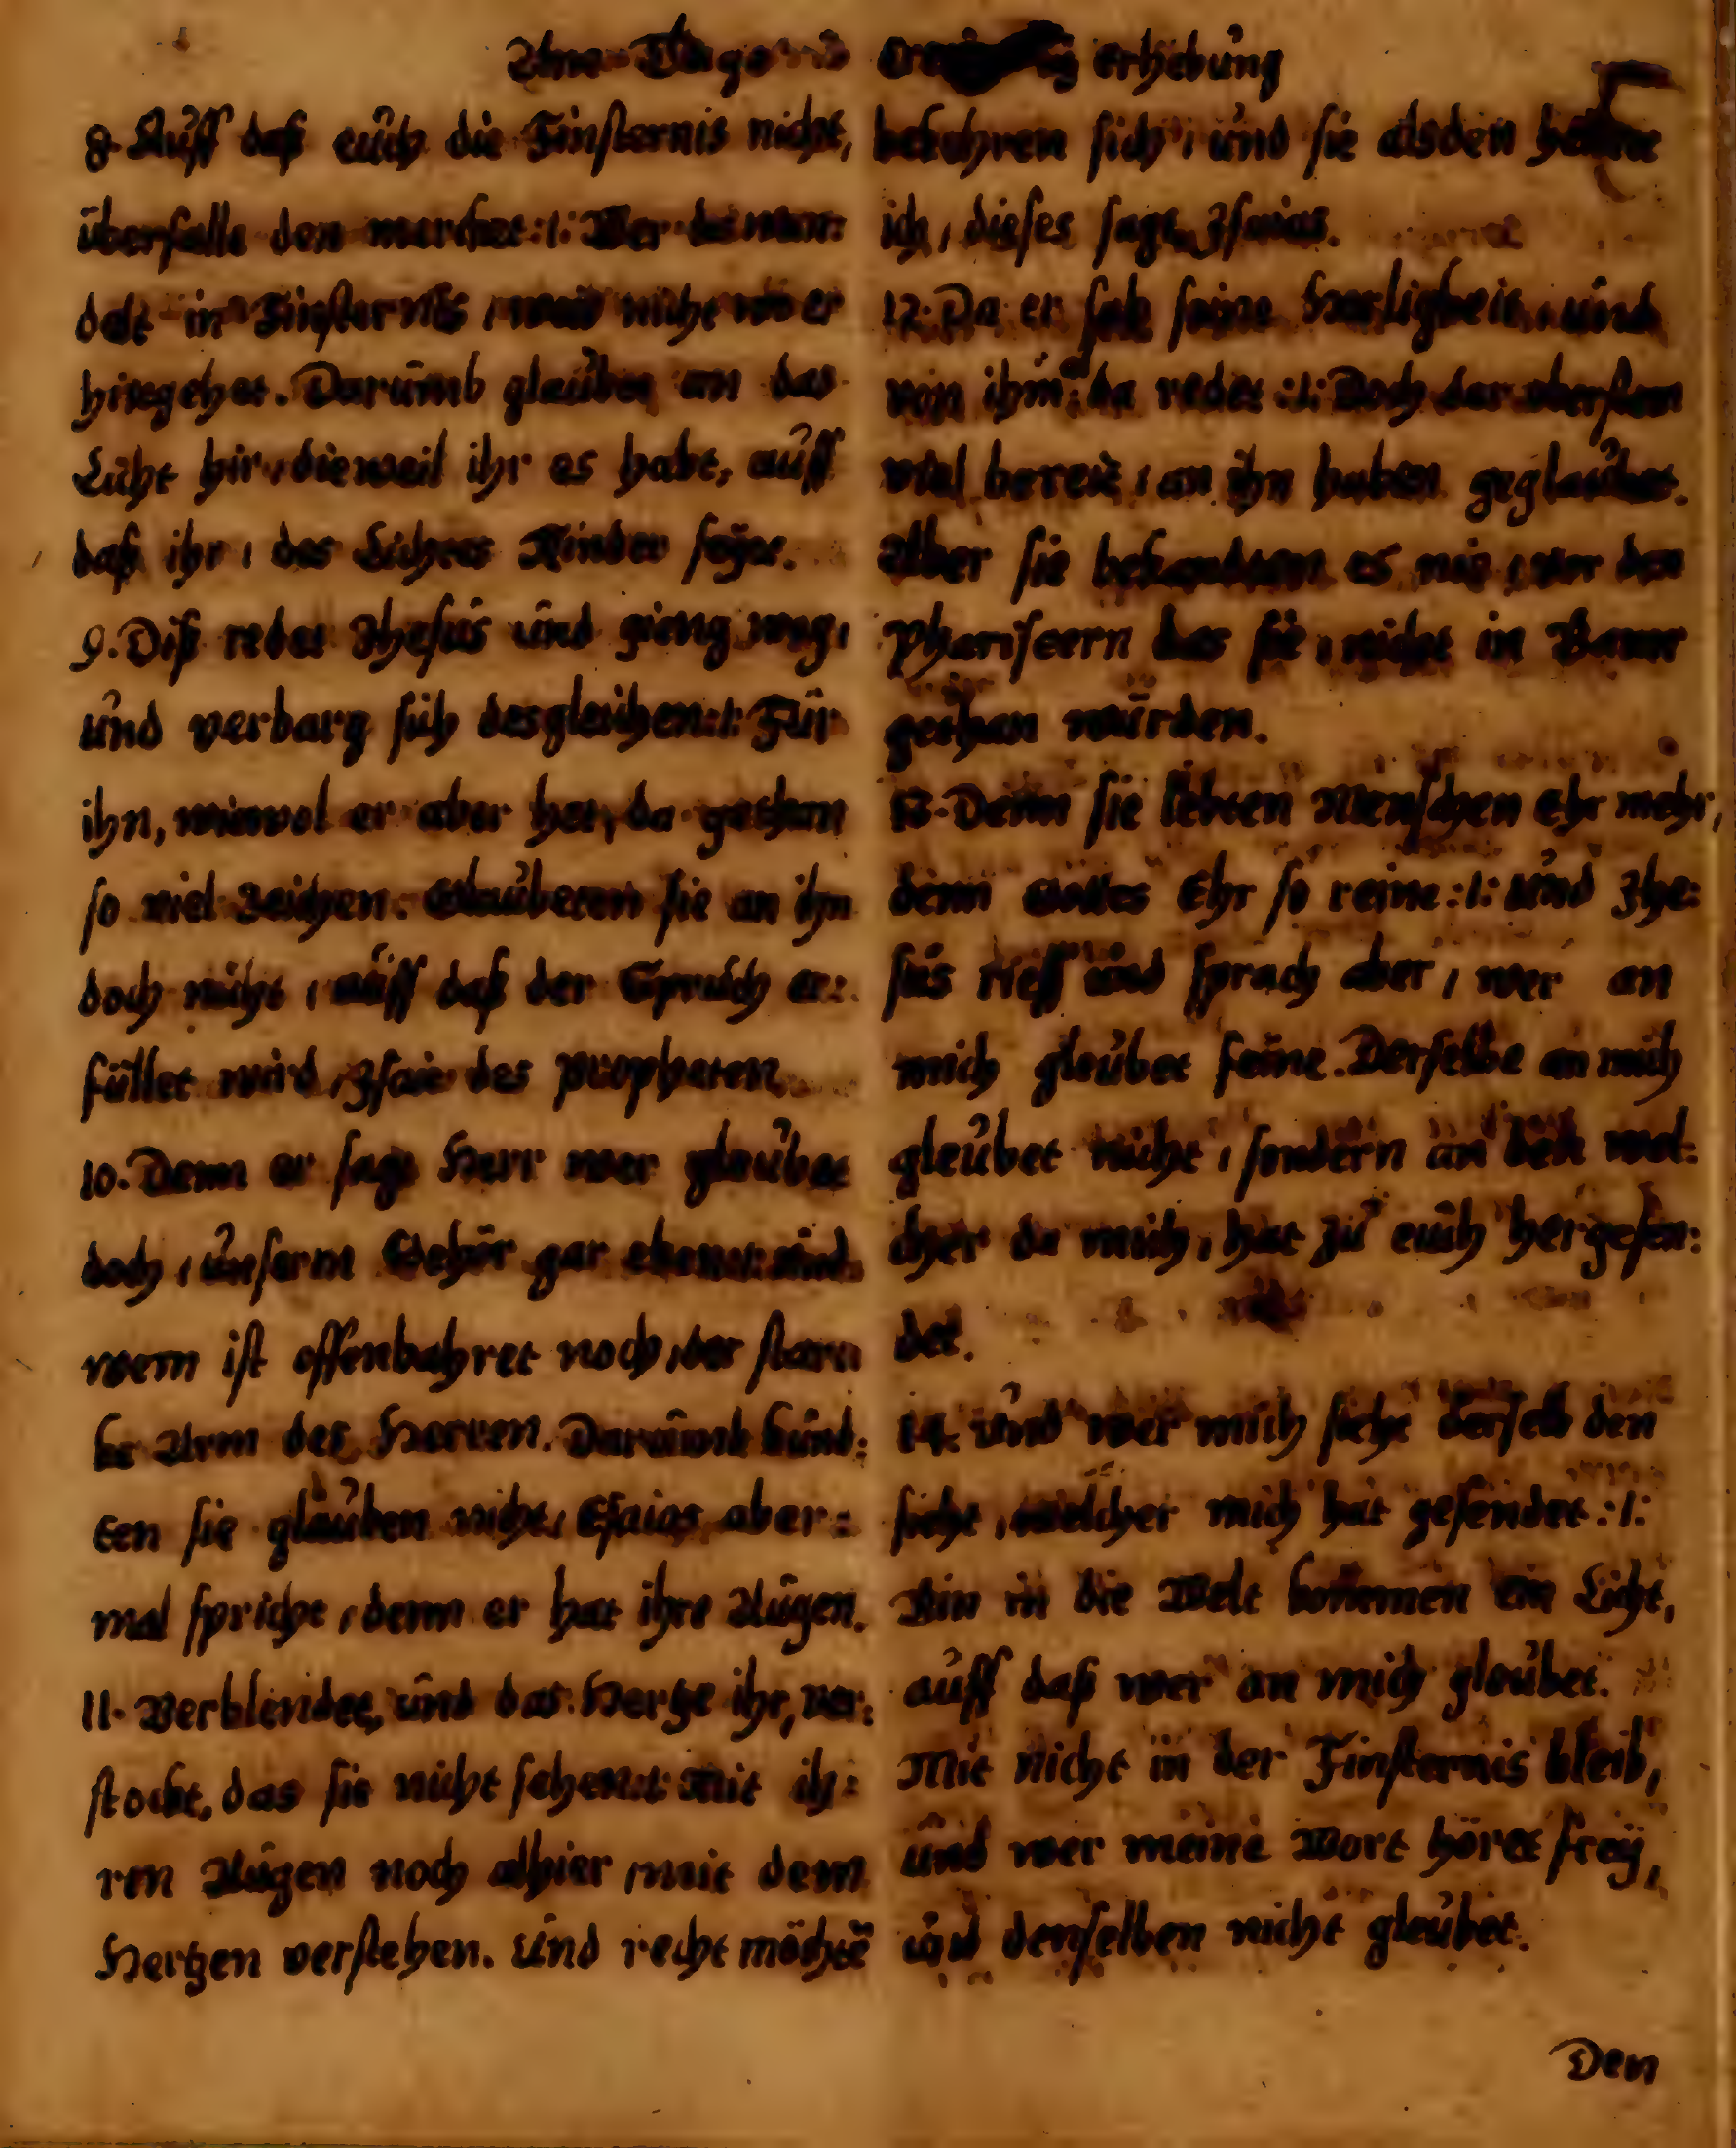 Am Tage erhebung
8. Auff daß euch die Finsternis nicht,
überfalle den mercket :/: Wer da wan:
delt in Finsternis, weis nicht wo er
hingehet. Darumb glaubet an das
Licht hir, dieweil ihr es habt, auff
daß ihr, des Lichtes Kinder seyet.
9. Diß redet Jhesus und gieng weg,
und verbarg sich desgleichen :/: Für
ihn, wiewol er aber hat, da gethan
so viel Zeichen. Glaubeten sie an ihn
doch nicht, auff daß der Spruch er:
füllet wird, Jsaie des propheten
10. Denn er sagt Herr wer glaubet
doch, unserm Gehör gar eben :/: und
wem ist offenbahret noch, der starc
ke Arm des Herren. Darumb kund:
ten sie glauben nicht, Esaias aber:
mal spricht, denn er hat ihre Augen.
11. Verblendet, und das Hertze ihr, ver:
stockt, das sie nicht sehen :/: Mit ih:
ren Augen noch alhier, mit dem
Hertzen verstehen. Und recht möchtē
bekehren sich, und sie alsden
ich, dieses sagt Jsaias.
12. Da er sah seine Herligkeit, und
von ihm da redet :/: Doch der obersten
viel bereit, an ihn haben geglaubet.
Aber sie bekandten es nie, vor den
Phariseern das sie, nicht in Bann
gethan würden.
13. Denn sie liebten Menschen Ehr mehr,
denn Gottes Ehr so reine :/: Und Jhe:
sus rieff und sprach aber, wer an
mich gleubet feine. Derselbe an mich
gleubet nicht, sondern an den wel:
cher da mich, hat zu euch hergesen:
det.
14. Und wer mich sieht derselb den
sieht, welcher mich hat gesendet :/:
Bin in die Welt kommen ein Licht,
auff daß wer an mich gleubet.
Mit nicht in der Finsternis bleib,
und wer meine Wort höret frey,
und denselben nicht gleubet.
Den